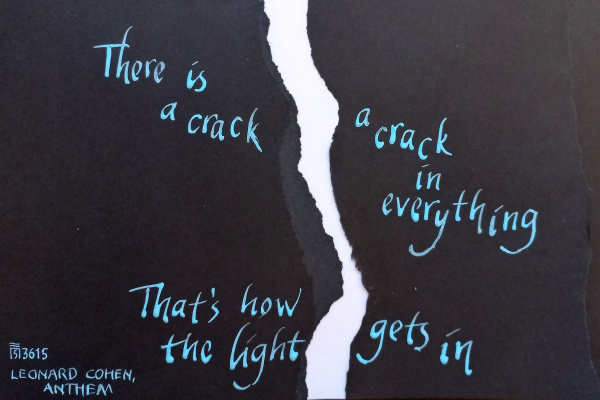 There is
a crack
a crack
in
everything
That's how
the light
gets in
3615
LEONARD COHEN,
ANTHEM